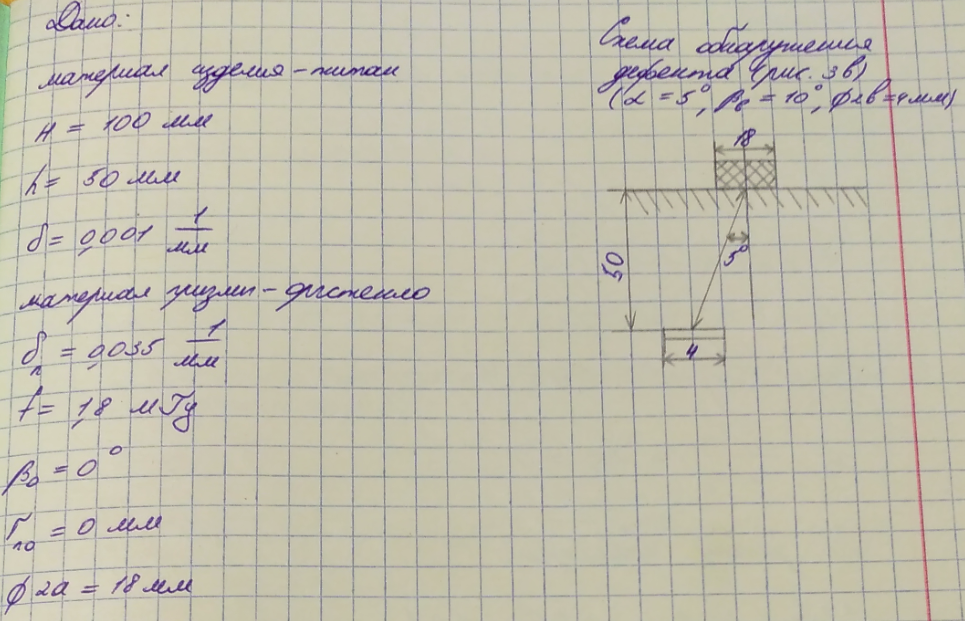 Дано:
материал изделия – титан
H = 100 мм
h = 50 мм
δ = 0,001 1/мм
материал призмы – оргстекло
δп = 0,035 1/мм
f = 1,8 мГц
β0 = 0°
rпо = 0 мм
φ 2a = 18 мм
Схема обнаружения
дефекта (рис. 3в)
(α = 5°, βв = 10°, φ2в = 4 мм)
18
50
5°
4